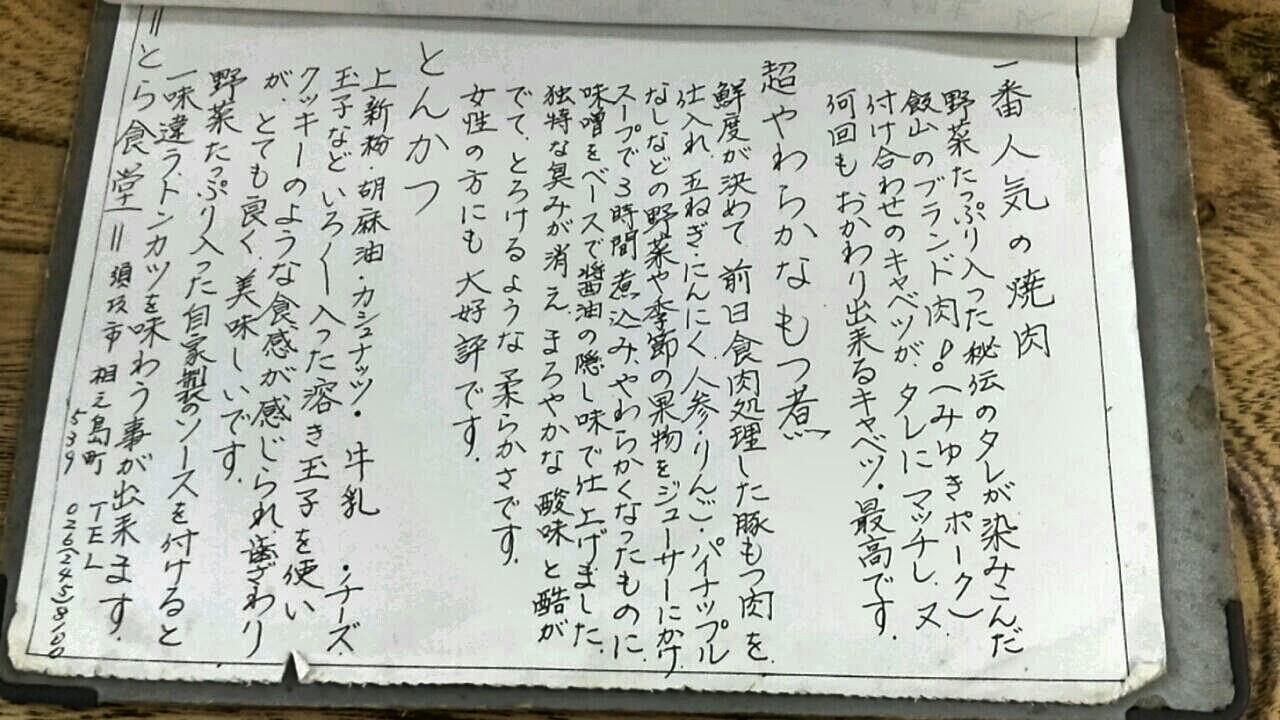 一番人気の焼肉
野菜たっぷり入った秘伝のタレが染みこんだ
飯山のブランド肉!!(みゆきポーク)
付け合わせのキャベツが、タレにマッチし、又
何回もおかわり出来るキャベツ・最高です。
超やわらかなもつ煮
鮮度が決めて 前日食肉処理した豚もつ肉を
仕入れ、玉ねぎ・にんにく人参・りんご・パイナップル
なしなどの野菜や季節の果物をジューサーにかけ
スープで3時間煮込み、やわらかくなったものに
味噌をベースで醤油の隠し味で仕上げました。
独特な臭みが消え、まろやかな酸味と酷が
でて、とろけるような柔らかさです。
女性の方にも大好評です。
とんかつ
上新粉・胡麻油・カシュナッツ・牛乳・チーズ
玉子などいろ〱入った溶き玉子を使い
クッキーのような食感が感じられ歯ざわり
が、とても良く、美味しいです。
野菜たっぷり入った自家製のソースを付けると
一味違う、トンカツを味わう事が出来ます。
=とら食堂= 須坂市 相之島町 TEL
539 026(245)8100